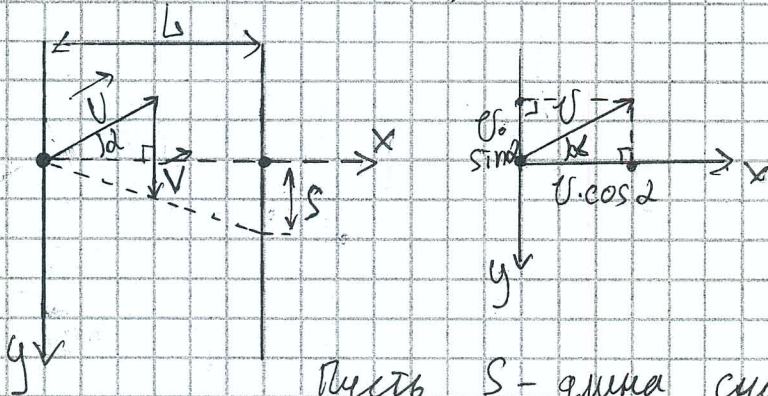 L
U
α
V
x
S
y
U
U·
sinα
α
U·cosα
x
y
Пусть S - длина